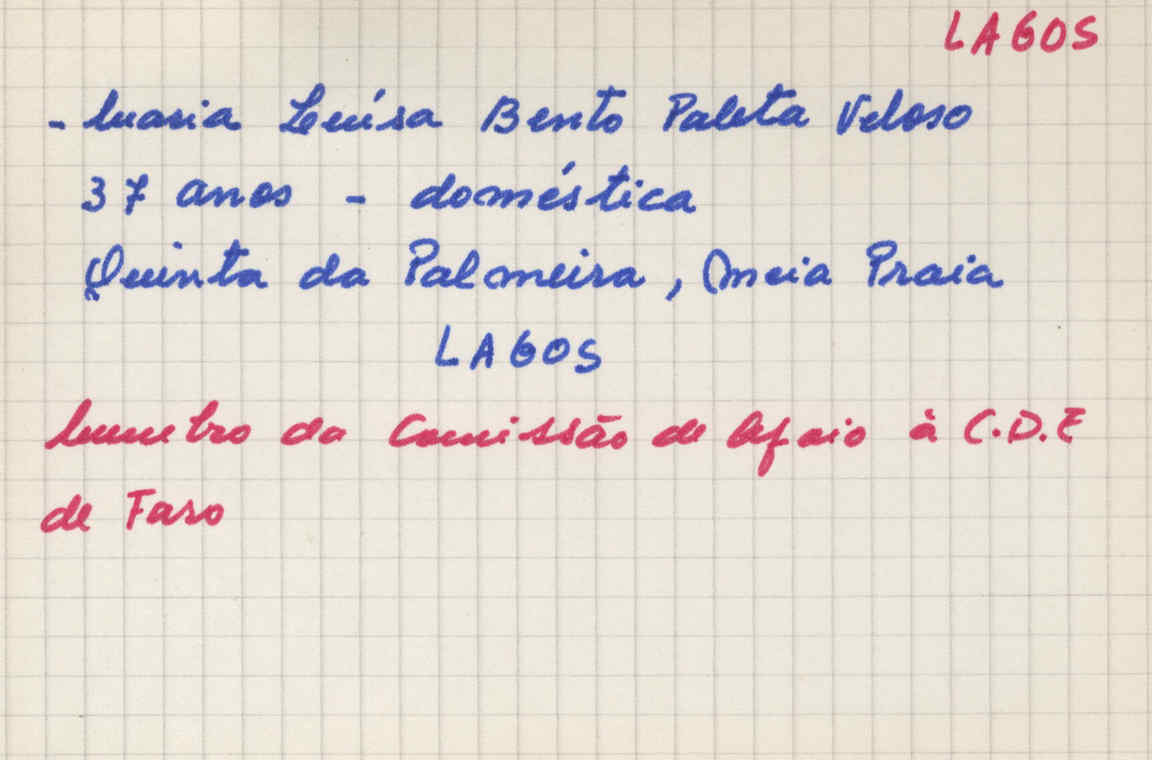 LAGOS
- Maria Luísa Bento Paleta Veloso
37 anos - doméstica
Quinta da Palmeira, Meia Praia
LAGOS
Membro da Comissão de Apoio à C.D.E
de Faro